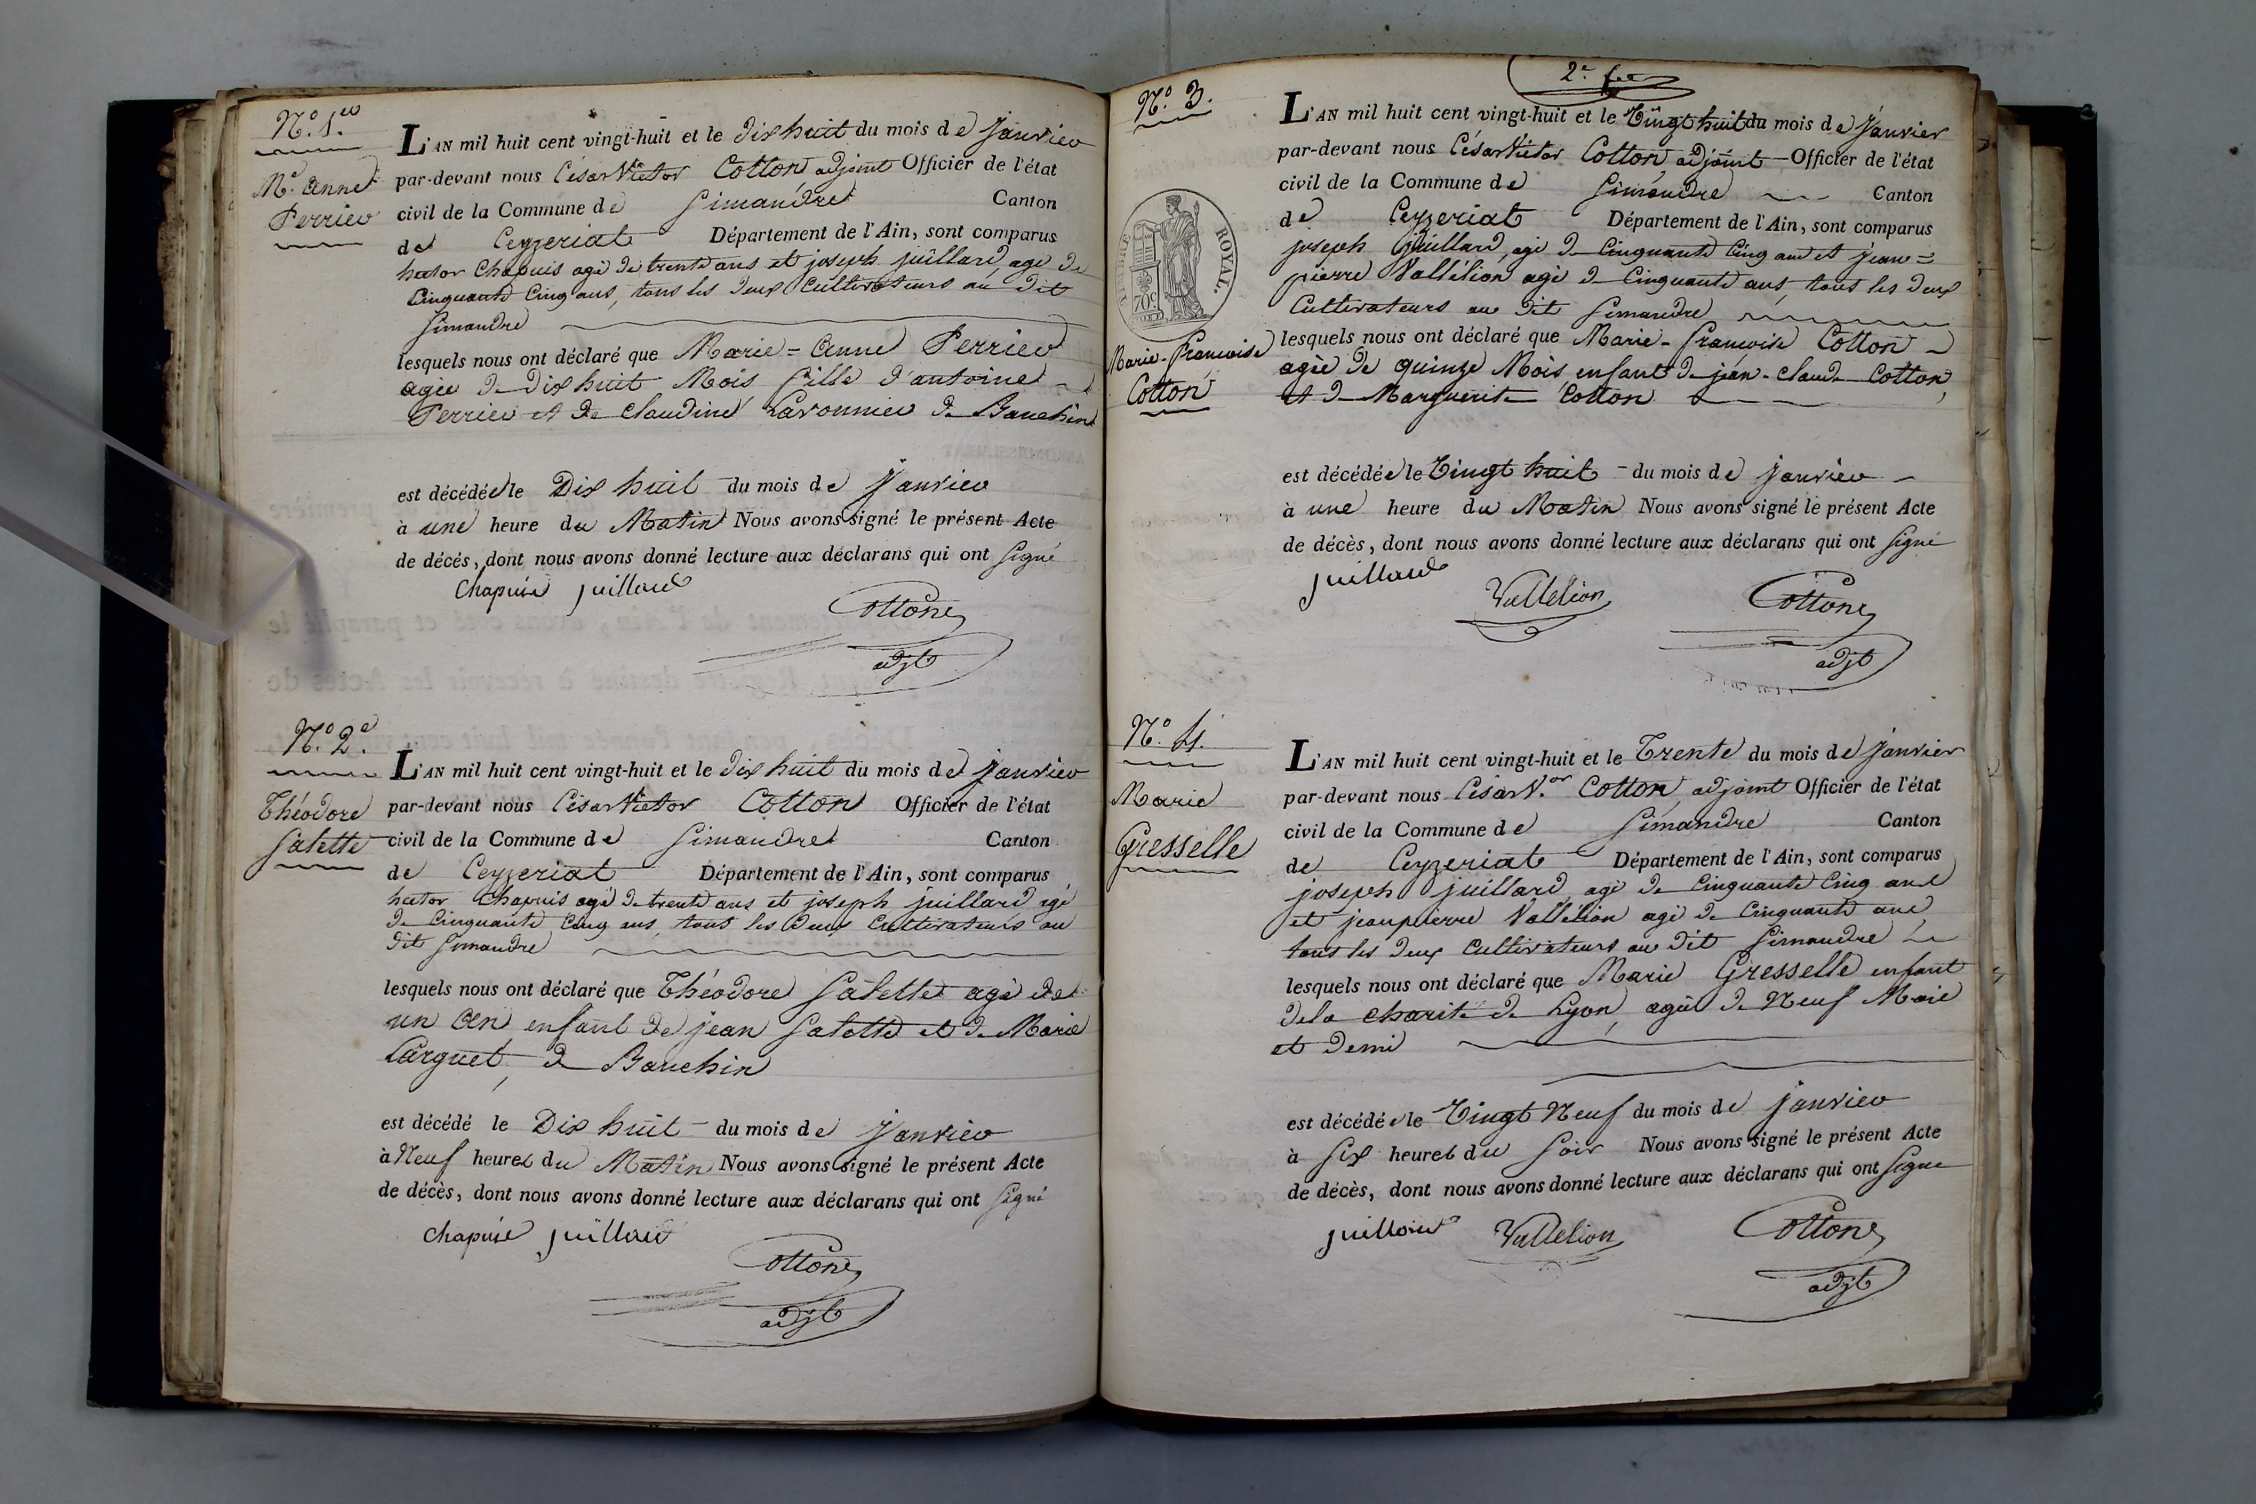 N.º 1.er
M.e Anne
Perrier
L'AN mil huit cent vingt-huit et le dix huit du mois de Janvier
par-devant nous César Victor Cotton adjoint Officier de l'état
civil de la Commune de Simandre Canton
de Ceyzeriat Département de l'Ain, sont comparus
hector Chapuis agé de trente ans et joseph juillard, agé de
Cinquante Cinq ans, tous les deux Cultivateurs au dit
Simandre
lesquels nous ont déclaré que Marie=Anne Perrier
agée de dix huit Mois fille d'antoine
Perrier et de Claudine Lavonnier de Banchin
est décédée le Dix huit du mois de Janvier
à une heure du Matin Nous avons signé le présent Acte
de décès, dont nous avons donné lecture aux déclarans qui ont Signé
Chapuis juillard
Cottone
adjt
N.º 2.e
Théodore
Salette
L'AN mil huit cent vingt-huit et le dix huit du mois de Janvier
par-devant nous César Victor Cotton Officier de l'état
civil de la Commune de Simandre Canton
de Ceyzeriat Département de l'Ain, sont comparus
hector Chapuis agé de trente ans et joseph juillard agé
de Cinquante Cinq ans, tous les deux Cultivateurs au
dit Simandre
lesquels nous ont déclaré que Théodore Salette agé de
un an enfant de jean Salette et de Marie
Larguet, de Banchin
est décédé le Dix huit du mois de Janvier
à Neuf heures du Matin Nous avons signé le présent Acte
de décès, dont nous avons donné lecture aux déclarans qui ont Signé
Chapuis juillard
Cottone
adjt
2.e
N.º 3.
ROYAL.
70c
Marie-Francoise
Cotton
L'AN mil huit cent vingt-huit et le Vingt huit du mois de Janvier
par-devant nous César Victor Cotton adjoint Officier de l'état
civil de la Commune de Simandre Canton
de Ceyzeriat Département de l'Ain, sont comparus
joseph juillard, agé de Cinquante Cinq ans et jean=
pierre Vallélion agé de Cinquante ans, tous les deux
Cultivateurs au dit Simandre
lesquels nous ont déclaré que Marie-Francoise Cotton
agée de quinze Mois enfant de jean-claude Cotton,
et de Marguerite Cotton
est décédée le Vingt huit du mois de Janvier
à une heure du Matin Nous avons signé le présent Acte
de décès, dont nous avons donné lecture aux déclarans qui ont Signé
juillard
Vallelion
Cottone
adjt
N.º 4.
Marie
Gresselle
L'AN mil huit cent vingt-huit et le Trente du mois de Janvier
par-devant nous César V.or Cotton, adjoint Officier de l'état
civil de la Commune de Simandre Canton
de Ceyzeriat Département de l'Ain, sont comparus
joseph juillard agé de Cinquante Cinq ans
et jeanpierre Vallelion agé de Cinquante ans,
tous les deux Cultivateurs au dit Simandre
lesquels nous ont déclaré que Marie Gresselle enfant
dela Charité de Lyon, agée de Neuf Mois
et demi
est décédée le Vingt Neuf du mois de Janvier
à Six heures du Soir Nous avons signé le présent Acte
de décès, dont nous avons donné lecture aux déclarans qui ont Signé
juillard Vallelion
Cottone
adjt